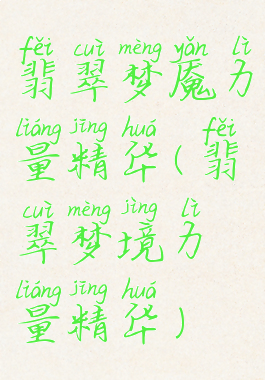 fěi cuì mèng yǎn lì
翡翠梦魇力
liáng jīng huá fěi
量精华(翡
cuì mèng jìng lì
翠梦境力
liáng jīng huá
量精华)